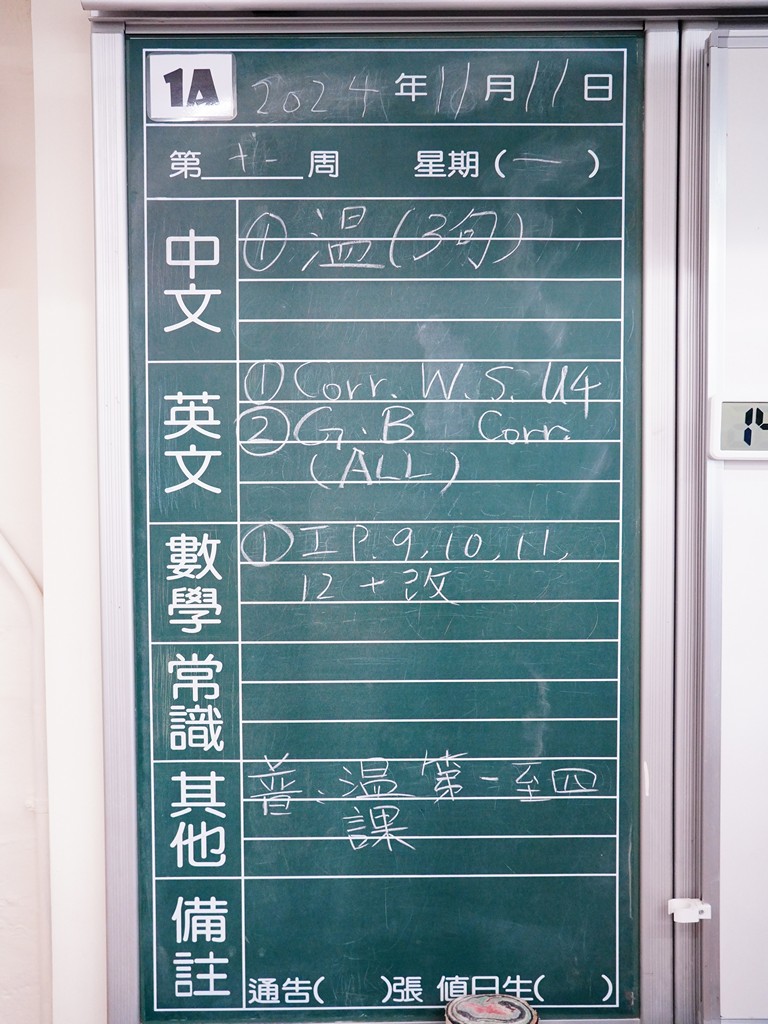 1A 2024年11月11日
第十一周 星期(一)
中文
① 温(3句)
英文
① Corr. W.S. U4
② G.B Corr.
(ALL)
數學
① 工 P.9,10,11,
12 + 改
常識
其他
普、温 第一至四
課
備註
通告( )張 值日生( )